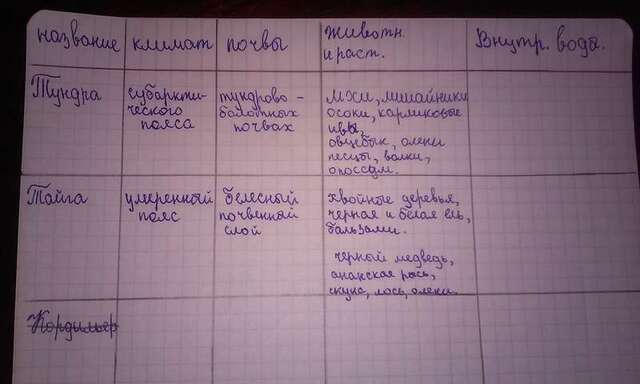 название климат почвы животн. Внутр. воды.
и раст.
Тундра субаркти- тундрово- мхи, лишайники
ческого болотных осоки, карликовые
пояса почвах ивы,
овцебык, олени
песцы, волки,
опоссам.
Тайга умеренный белесный хвойные деревья,
пояс почвенный черная и белая ель,
слой бальзами.
черный медведь,
рысь,
скунс, лось, олени.
Кордильер